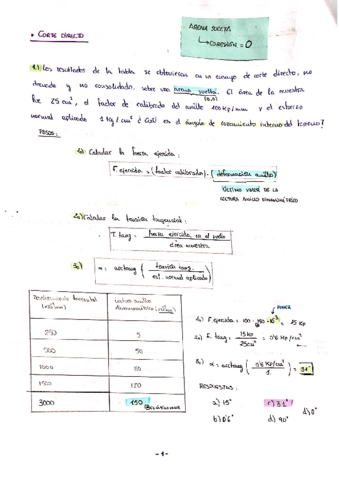 • CORTE DIRECTO
ARENA SUELTA
↳ COHESIÓN = 0
1.) Los resultados de la tabla se obtuvieron en un ensayo de corte directo, no
drenado y no consolidado, sobre una arena suelta. El área de la muestra
fue 25 cm², el factor de calibrado del anillo 100 Kp/mm y el esfuerzo
normal aplicado 1 Kg/cm² ¿Cuál es el ángulo de rozamiento interno del terreno?
PASOS:
1º) Calcular la fuerza ejercida:
F. ejercida = (factor calibrado) · (deformación anillo)
ÚLTIMO VALOR DE LA
LECTURA ANILLO DINAMOMÉTRICO
2º) Calcular la tensión tangencial:
T. tang = fuerza ejercida en el suelo
área muestra
3º) α = arctang ( tensión tang.
est. normal aplicado )
Desplazamiento horizontal
Lectura anillo
dinamométrico
250 5
500 50
1000 80
1500 120
3000 150
1º) F. ejercida = 100 · 150 · 10⁻³ = 15 Kp
2º) T. tang = 15 Kp
25 cm² = 0'6 Kp/cm²
3º) α = arctang ( 0'6 Kp/cm²
1 ) = 31°
RESPUESTAS:
a) 15° c) 31°
b) 0'6° d) 90°
-1-